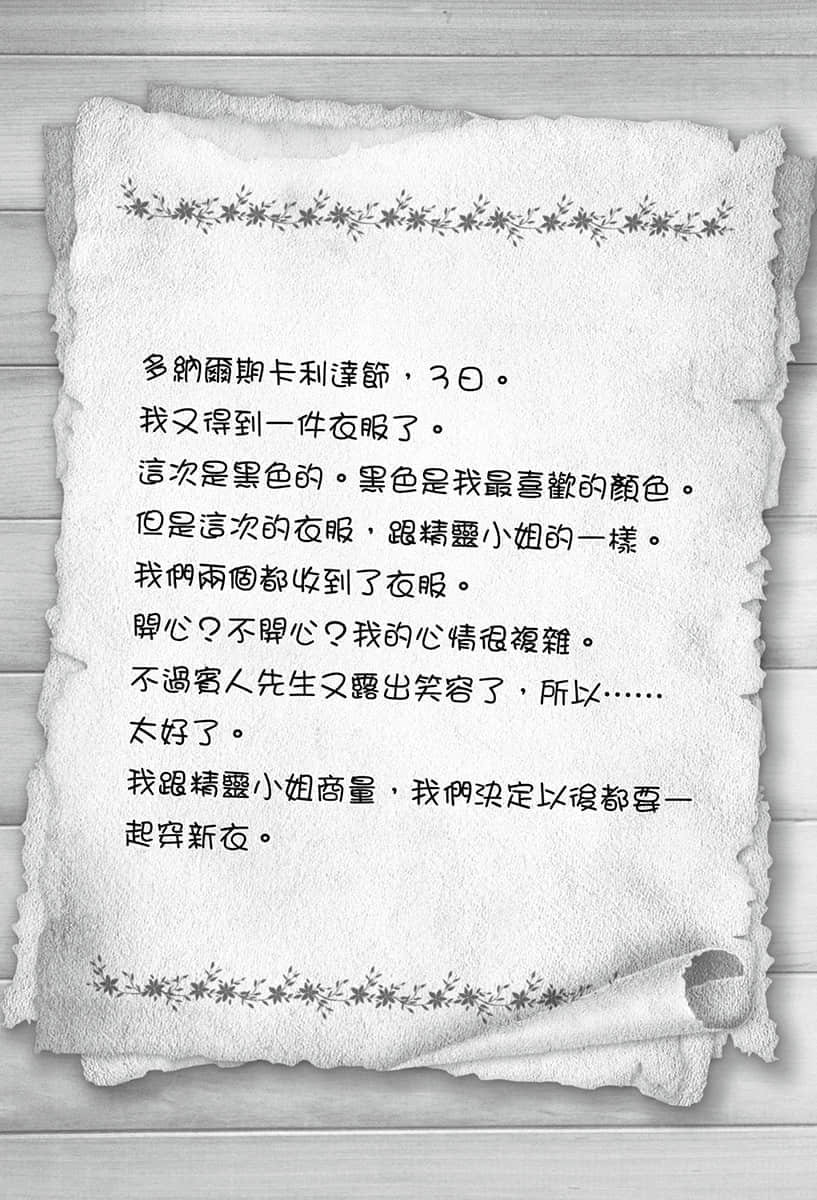 多納爾期卡利達節，3日。
我又得到一件衣服了。
這次是黑色的。黑色是我最喜歡的顏色。
但是這次的衣服，跟精靈小姐的一樣。
我們兩個都收到了衣服。
開心？不開心？我的心情很複雜。
不過賓人先生又露出笑容了，所以……
太好了。
我跟精靈小姐商量，我們決定以後都要一
起穿新衣。